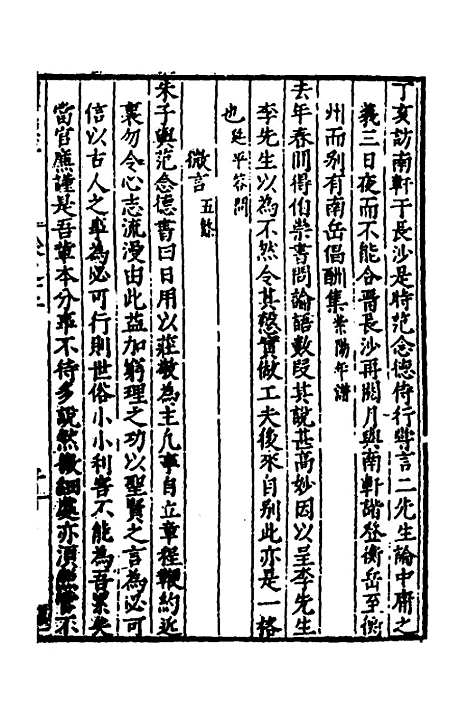 丁亥訪南軒于長沙是時范念德侍行嘗言二先生論中庸之
義三日夜而不能合留長沙再閱月與南軒諧登衡岳至衡
州而别有南岳倡酬集紫陽年譜
去年春間得伯崇書問論語數段其說甚高妙因以呈李先生
李先生以為不然令其慤實做工夫後來自别此亦是一格
也延平答問
微言五條
朱子與范念德書曰日用以莊敬為主凡事自立章程鞭約近
裏勿令心志流漫由此益加窮理之功以聖賢之言為必可
信以古人之事為必可行則世俗小小利害不能為吾累矣
當官廉謹是吾輩本分事不待多說然微細處亦須照管不